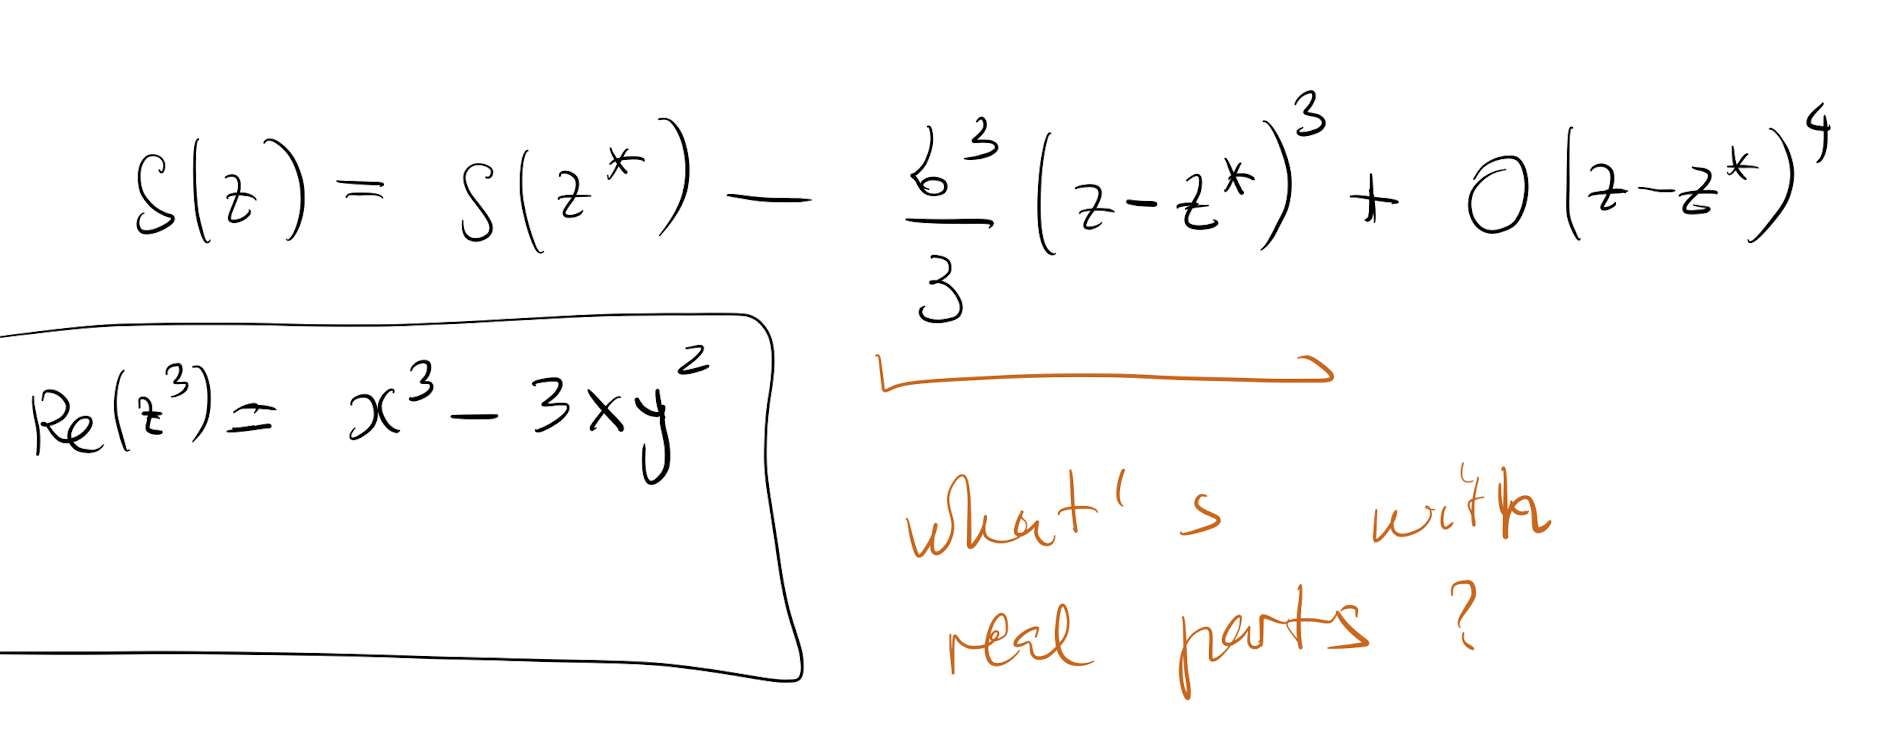 S(z) = S(z*) − σ³/3 (z−z*)³ + O(z−z*)⁴
Re(z³) = x³ − 3xy²
what's with
real parts?